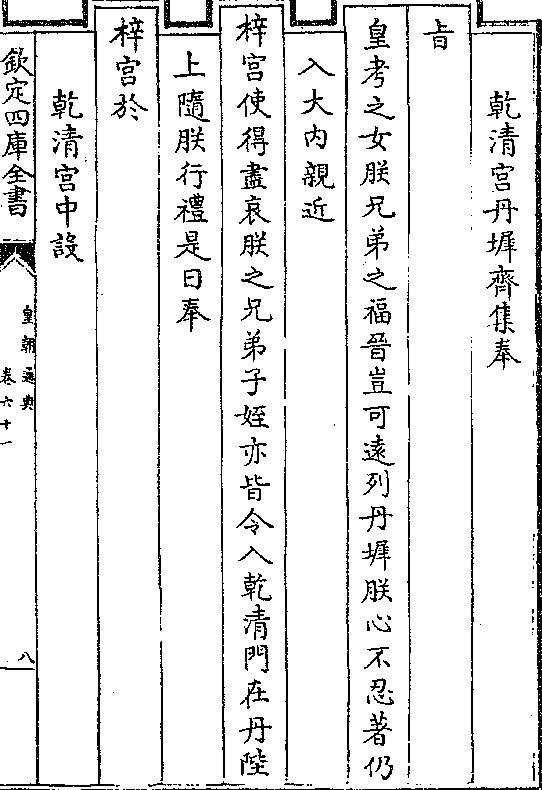 乾清宮丹墀齊集奉
旨
皇考之女朕兄弟之福晉豈可遠列丹墀朕心不忍著仍
入大內親近
梓宮使得盡哀朕之兄弟子姪亦皆令入乾清門在丹陛
上隨朕行禮是日奉
梓宮於
乾清宮中設
欽定四庫全書
皇朝通典
卷六十一
八